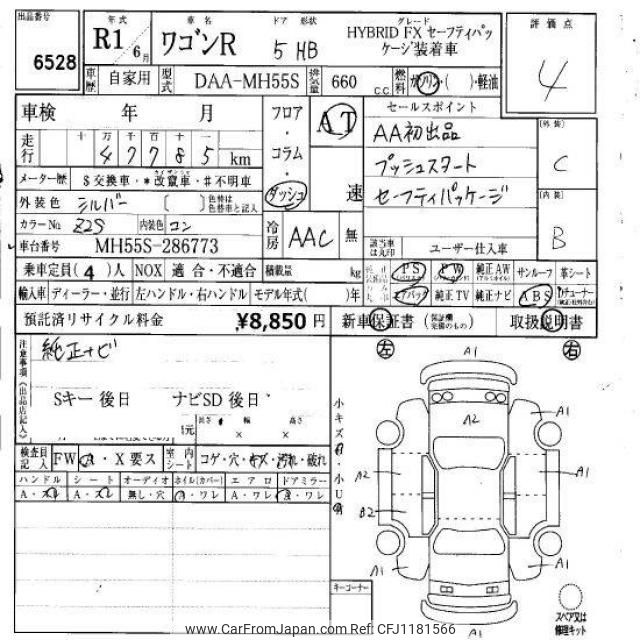 出品番号
6528
年式
R1 6月
車名
ワゴンR
ドア 形状
5 HB
グレード
HYBRID FX セーフティパッケージ装着車
評価点
4
車歴 自家用
型式 DAA-MH55S
排気量 660 c.c.
燃料 ガソリン・( )・軽油
車検 年 月
走行 十 万 千 百 十 一
4 7 7 8 5 km
メーター歴 $交換車・*改竄車・#不明車
外装色 シルバー 〔 〕 色替車は色替車と記入
カラーNo Z2S 内装色 コン
車台番号 MH55S-286773
フロア・コラム・ダッシュ
AT
速
冷房 AAC 無
セールスポイント
AA初出品
プッシュスタート
セーフティパッケージ
該当車は丸印 ユーザー仕入車
[外装]
C
[内装]
B
乗車定員(4)人 NOX 適合・不適合 積載量 kg
PS PW 純正AW サンルーフ 革シート
輸入車 ディーラー・並行 左ハンドル・右ハンドル モデル年式( )年
エアバック 純正TV 純正ナビ ABS Dチューナー
預託済リサイクル料金 ¥8,850 円
新車保証書 (保証欄完備のもの) 取扱説明書
注意事項《出品店記入》
純正ナビ
Sキー後日 ナビSD後日
長さ 幅 高さ
× ×
検査員記入 FW A・X要ス 室内シート コゲ・穴・キズ・汚れ・破れ
ハンドル シート オーディオ ホイル(カバー) エアロ ドアミラー
A・スレ A・スレ 無し・穴 A・ワレ A・ワレ A・ワレ
小キズ有・小U有
キーコーナー
左
右
A1
A2
A1
A1
A2
A1
B2
A1
A1
A1
スペア又は修理キット
www.CarFromJapan.com Ref: CFJ1181566